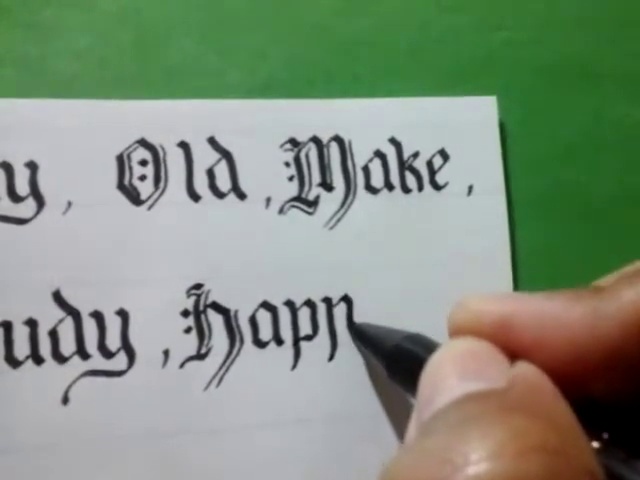 y, Old, Make,
udy, Happ